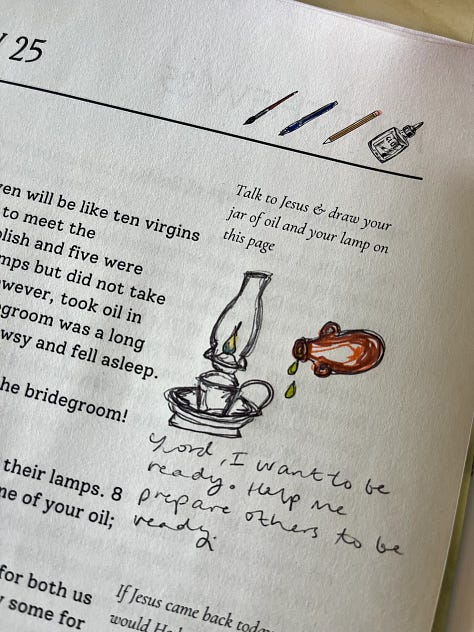 25
ven will be like ten virgins
to meet the
olish and five were
mps but did not take
owever, took oil in
egroom was a long
wsy and fell asleep.
he bridegroom!
their lamps. 8
ne of your oil;
for both us
y some for
Talk to Jesus & draw your
jar of oil and your lamp on
this page
Lord, I want to be
ready. Help me
prepare others to be
ready.
If Jesus came back toda
would He